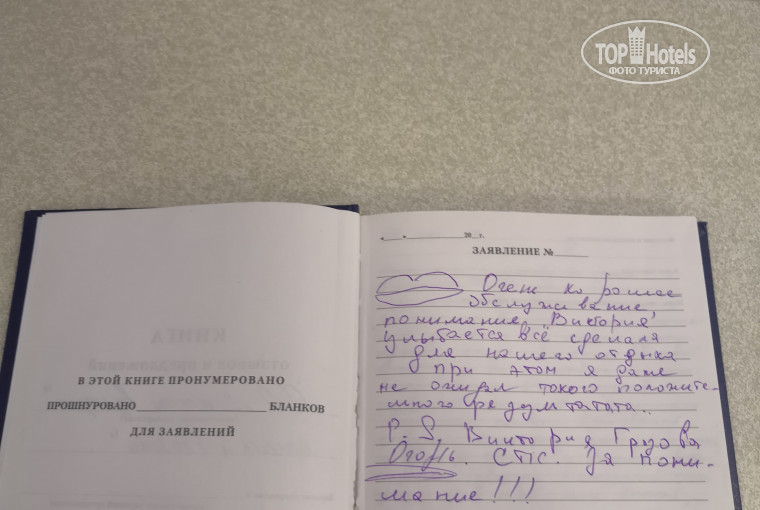 TOP Hotels
ФОТО ТУРИСТА
КНИГА
В ЭТОЙ КНИГЕ ПРОНУМЕРОВАНО
ПРОШНУРОВАНО ______ БЛАНКОВ
ДЛЯ ЗАЯВЛЕНИЙ
«__» ______ 20__г.
ЗАЯВЛЕНИЕ №______
Очень хорошее
обслуживание,
понимание, "Виктория"
улыбается всё сделала
для нашего отдыха
при этом я даже
не ожидал такого положите-
льного результата..
P.S. Виктория Грузова
Огонь. Спс. За пони-
мание!!!